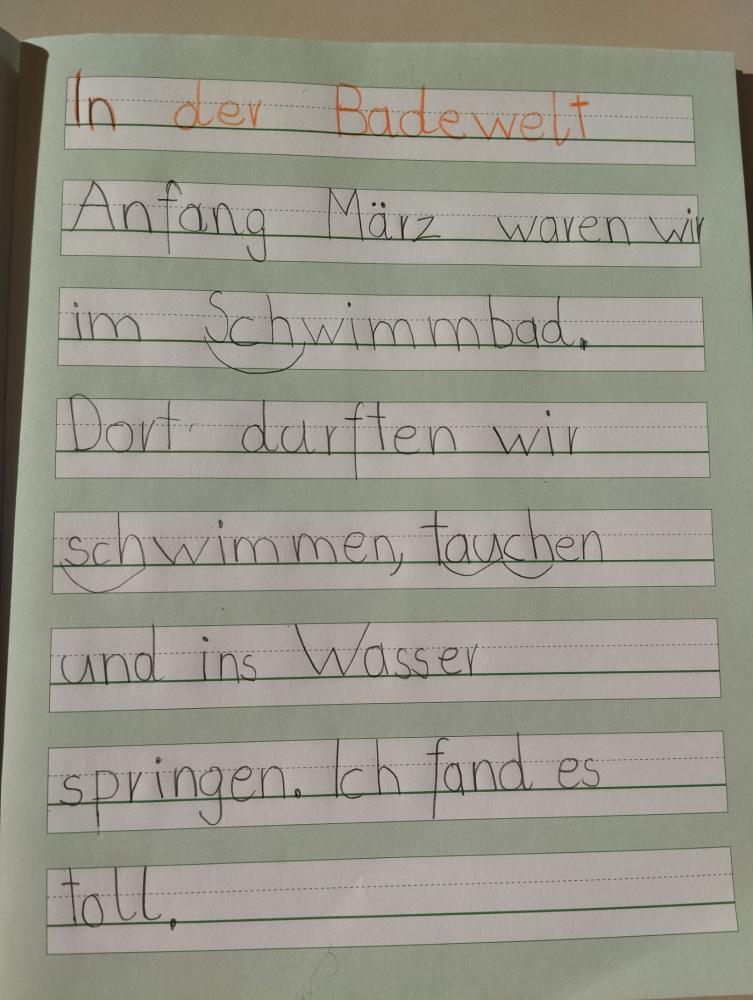 In der Badewelt
Anfang März waren wir
im Schwimmbad.
Dort durften wir
schwimmen, tauchen
und ins Wasser
springen. Ich fand es
toll.